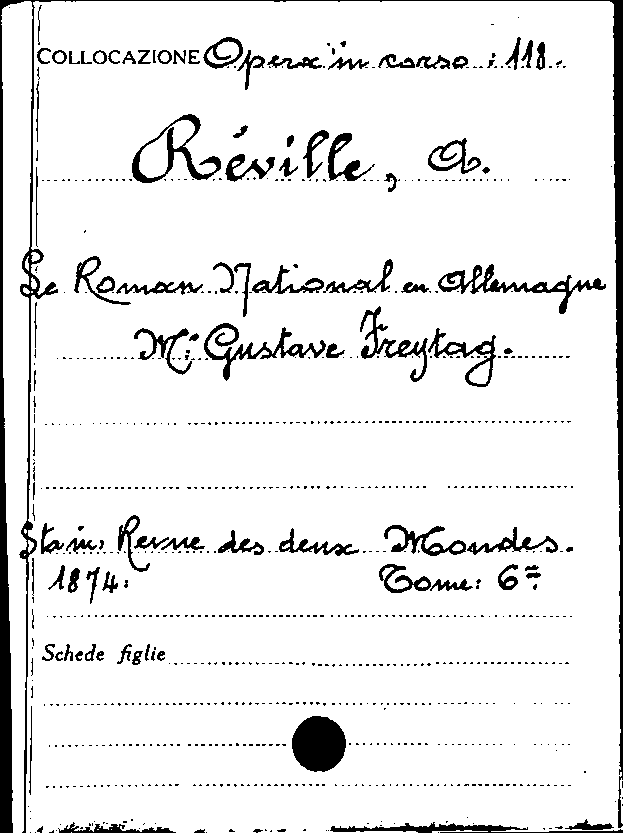 COLLOCAZIONE Opera in corso : 118.
Réville, A.
Le Roman National en Allemagne
Mr. Gustave Freytag.
Sta in: Revue des deux Mondes.
1874. Tome: 6=.
Schede figlie